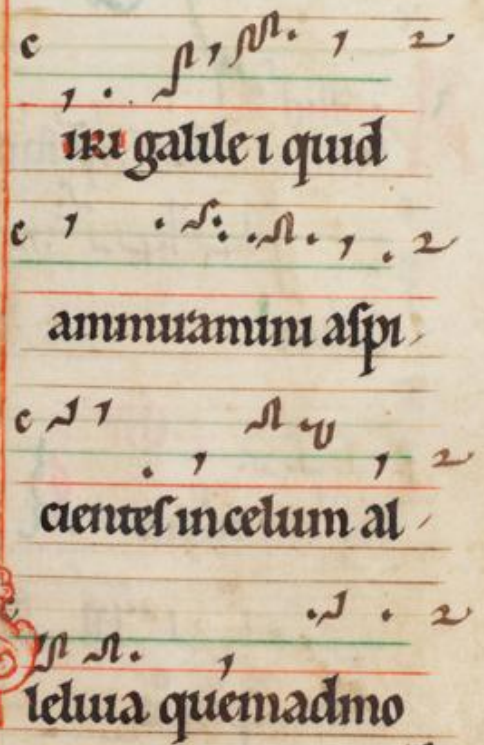 iri galilei quid
ammiramini aspi
cientes in celum al
leluia quemadmo